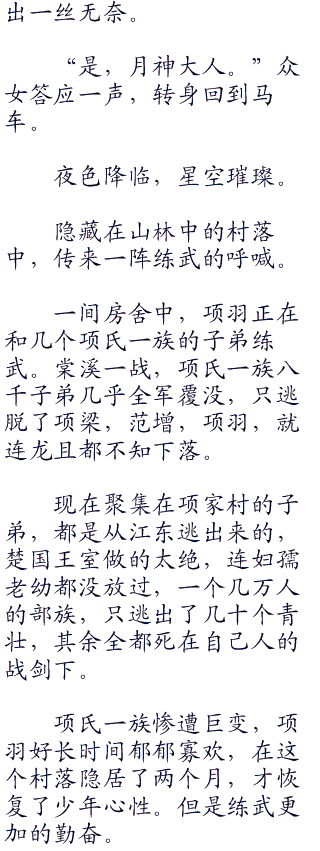 出一丝无奈。
“是，月神大人。”众
女答应一声，转身回到马
车。
夜色降临，星空璀璨。
隐藏在山林中的村落
中，传来一阵练武的呼喊。
一间房舍中，项羽正在
和几个项氏一族的子弟练
武。棠溪一战，项氏一族八
千子弟几乎全军覆没，只逃
脱了项梁，范增，项羽，就
连龙且都不知下落。
现在聚集在项家村的子
弟，都是从江东逃出来的，
楚国王室做的太绝，连妇孺
老幼都没放过，一个几万人
的部族，只逃出了几十个青
壮，其余全都死在自己人的
战剑下。
项氏一族惨遭巨变，项
羽好长时间郁郁寡欢，在这
个村落隐居了两个月，才恢
复了少年心性。但是练武更
加的勤奋。